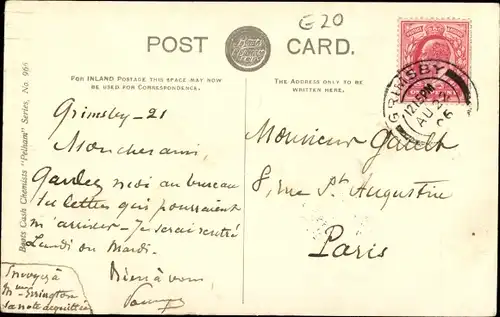 G20
POST CARD.
FOR INLAND POSTAGE THIS SPACE MAY NOW
BE USED FOR CORRESPONDENCE.
THE ADDRESS ONLY TO BE
WRITTEN HERE.
GRIMSBY
12.15PM
AU 22
06
Boots Cash Chemists "Pelham" Series, No. 966
Grimsby - 21
Mon cher ami,
Gardez moi au bureau
les lettres qui pourraient
m'arriver - Je serai rentré
Lundi ou Mardi.
Bien à vous,
Envoyez à
Mme Errington
sa note acquittée
Monsieur Gault
8, Rue St Augustin
Paris